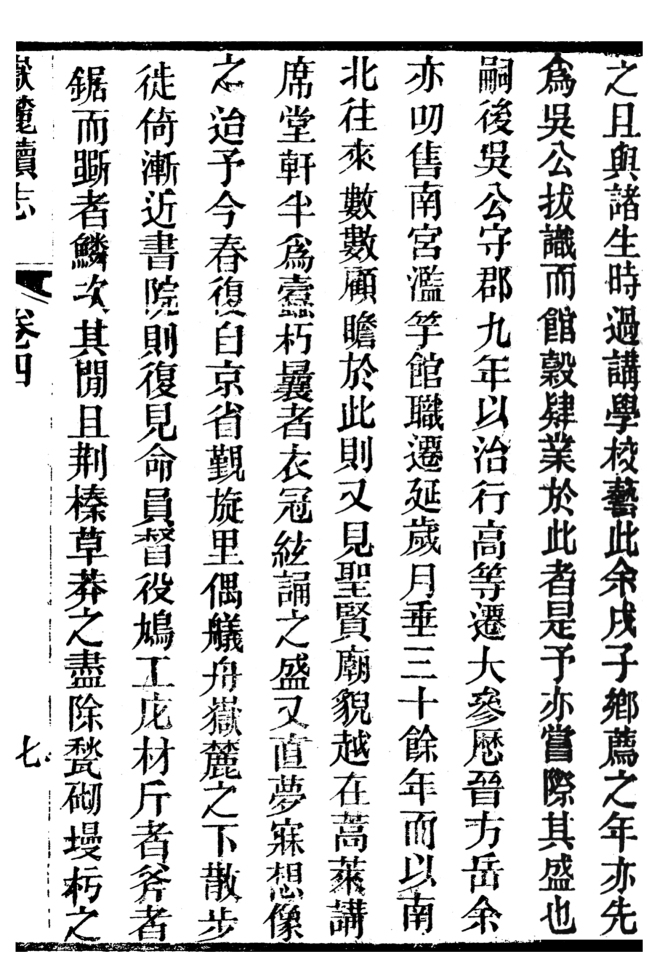 之且與諸生時過講學校藝此余戌子鄉薦之年亦先
為吳公拔識而館穀肄業於此者是予亦嘗際其盛也
嗣後吳公守郡九年以治行高等遷大參歷晉方岳余
亦叨售南宮濫竽館職遷延歲月垂三十餘年而以南
北往來數數顧瞻於此則又見聖賢廟貌越在蒿萊講
席堂軒半為蠹朽曩者衣冠絃誦之盛又直夢寐想像
之迨予今春復自京省覲旋里偶艤舟嶽麓之下散步
徙倚漸近書院則復見命員督役鳩工庀材斤者斧者
鋸而斵者鱗次其閒且荆榛草莽之盡除甃砌墁杇之
嶽麓續志
卷四
七